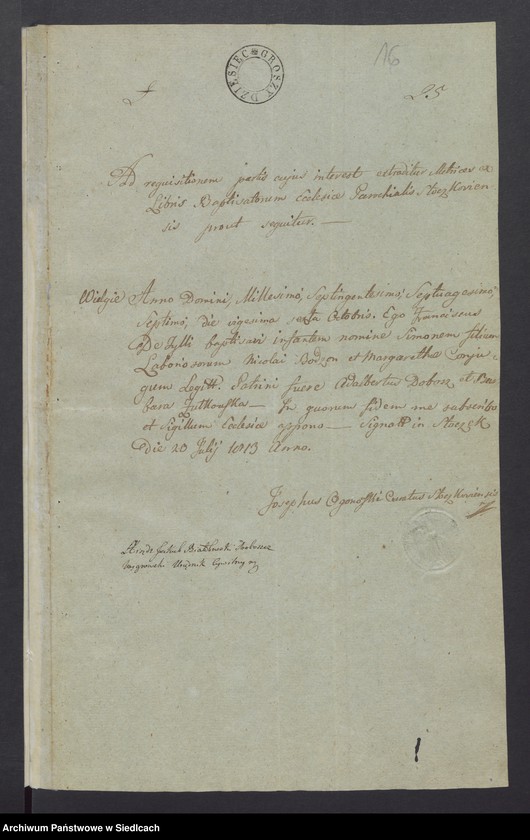 16
DZIESIEC GROSZY
25
Ad requisitionem partis cujus interest extraditur Metrices ex
Libris Baptisatorum Ecclesiæ Parochialis Stoczkovien-
sis prout sequitur. —
Wielgie Anno Domini, Millesimó, Septingentesimó, Septuagesimó,
Septimó, die vigesima sexta Octobris. Ego Franciscus
De Zylli baptisavi infantem nomine Simonem filium
Laboriosorum Nicolai Bodzon et Margarethæ Conju-
gum Legitt. Patrini fuere Adalbertus Dobosz et Bar
bara Jutkowska — In quorum fidem me subscribo
et Sigillum Ecclesiæ appono — Signatt in Stoczek
die 20 Julij 1813 Anno.
Josephus Ogonoski Curatus Stoczkoviensis
Jakub Białkowski Proboszcz
Urzędnik Cywilny
Archiwum Państwowe w Siedlcach